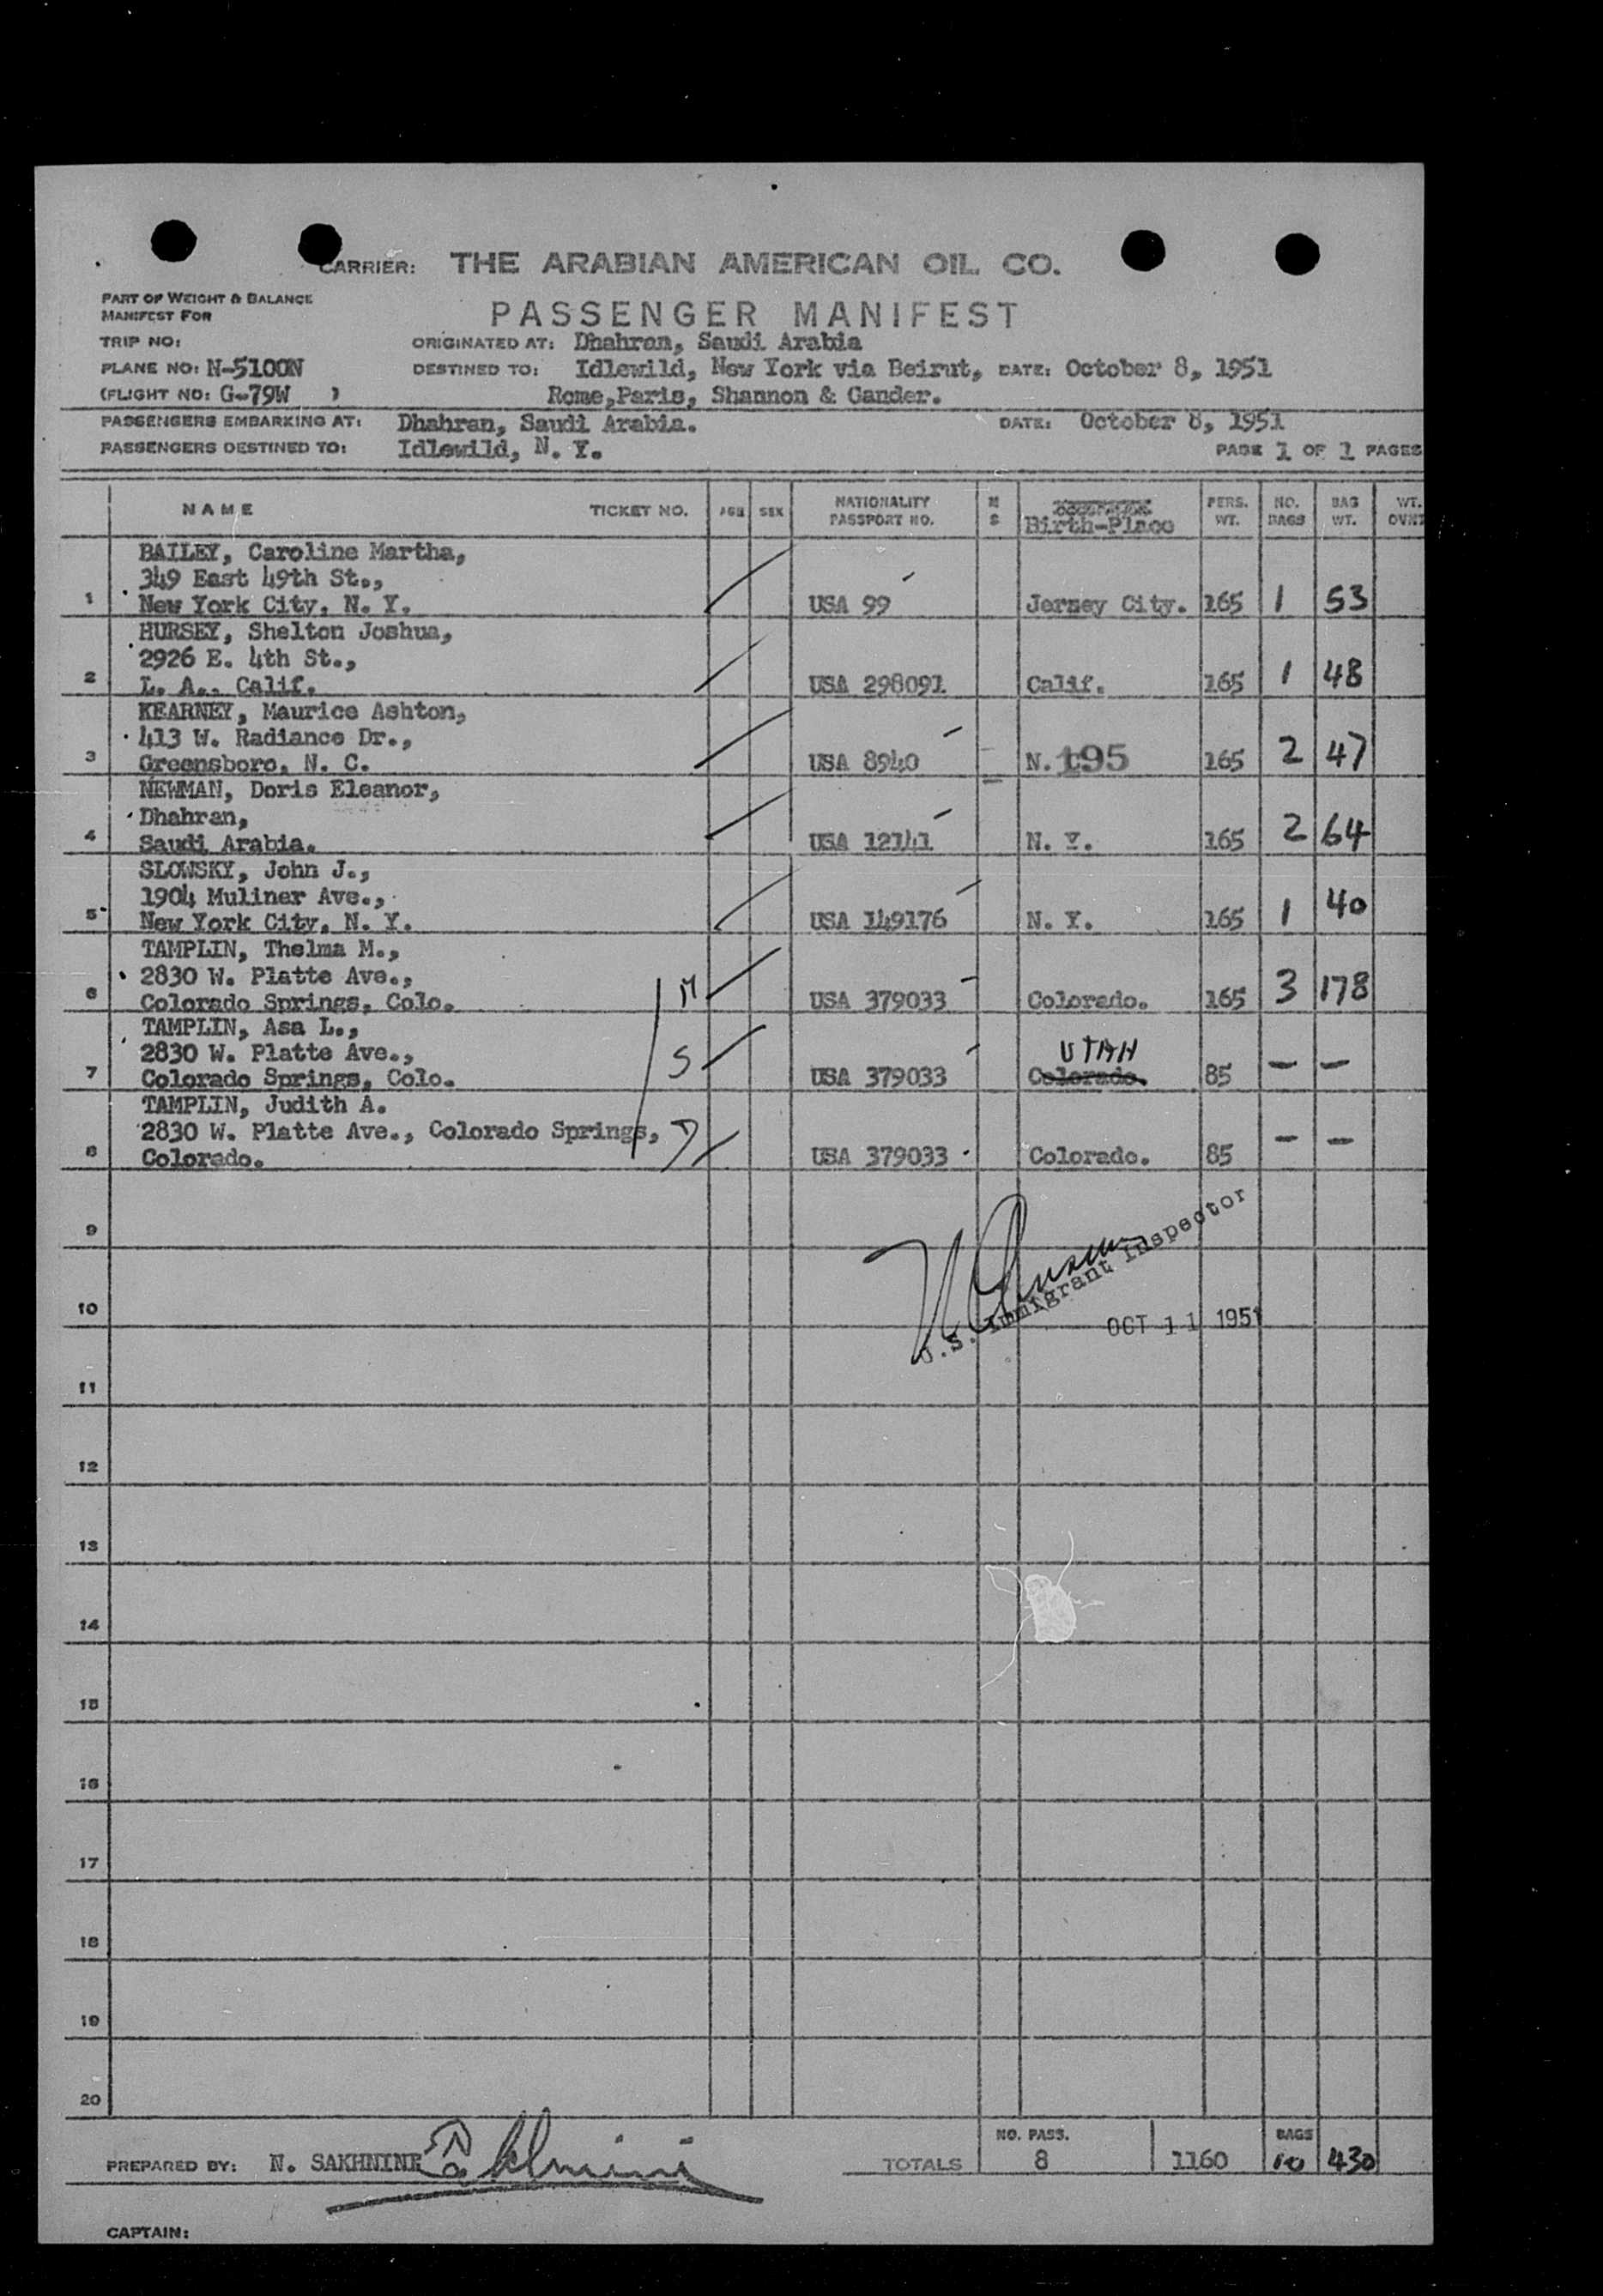 CARRIER: THE ARABIAN AMERICAN OIL CO.
PART OF WEIGHT & BALANCE
MANIFEST FOR
PASSENGER MANIFEST
TRIP NO:
ORIGINATED AT: Dhahran, Saudi Arabia
PLANE NO: N-5100N
DESTINED TO: Idlewild, New York via Beirut, DATE: October 8, 1951
(FLIGHT NO: G-79W )
Rome,Paris, Shannon & Gander.
PASSENGERS EMBARKING AT: Dhahran, Saudi Arabia. DATE: October 8, 1951
PASSENGERS DESTINED TO: Idlewild, N. Y. PAGE 1 OF 1 PAGES
NAME TICKET NO. AGE SEX NATIONALITY PASSPORT NO. M S Birth-Place PERS. WT. NO. BAGS BAG WT. WT. OVNT
BAILEY, Caroline Martha,
349 East 49th St.,
1 New York City, N. Y. USA 99 Jersey City. 165 1 53
HURSEY, Shelton Joshua,
2926 E. 4th St.,
2 L. A., Calif. USA 298091 Calif. 165 1 48
KEARNEY, Maurice Ashton,
413 W. Radiance Dr.,
3 Greensboro, N. C. USA 8940 N. 195 165 2 47
NEWMAN, Doris Eleanor,
Dhahran,
4 Saudi Arabia. USA 12141 N. Y. 165 2 64
SLOWSKY, John J.,
1904 Muliner Ave.,
5 New York City, N. Y. USA 149176 N. Y. 165 1 40
TAMPLIN, Thelma M.,
2830 W. Platte Ave.,
6 Colorado Springs, Colo. M USA 379033 Colorado. 165 3 178
TAMPLIN, Asa L.,
2830 W. Platte Ave., S UTAH
7 Colorado Springs, Colo. USA 379033 Colorado. 85 — —
TAMPLIN, Judith A.
2830 W. Platte Ave., Colorado Springs, D
8 Colorado. USA 379033 Colorado. 85 — —
9
U.S. Immigrant Inspector
10
OCT 11 1951
11
12
13
14
15
16
17
18
19
20
NO. PASS. BAGS
PREPARED BY: N. SAKHNINE TOTALS 8 1160 10 430
CAPTAIN: